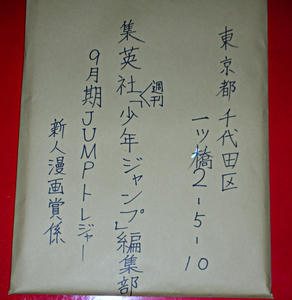 東京都千代田区
一ツ橋2-5-10
集英社「週刊少年ジャンプ」編集部
9月期JUMPトレジャー
新人漫画賞係